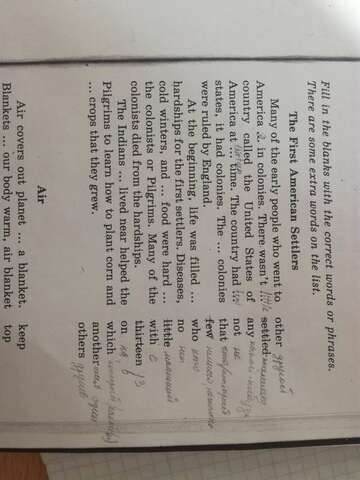 Fill in the blanks with the correct words or phrases.
There are some extra words on the list.
The First American Settlers
Many of the early people who went to
America 2 in colonies. There wasn't little
country called the United States of
America at ... time. The country had
states, it had colonies. The ... colonies
were ruled by England.
At the beginning, life was filled ...
hardships for the first settlers. Diseases,
cold winters, and ... food were hard ...
the colonists or Pilgrims. Many of the
colonists died from the hardships.
The Indians ... lived near helped the
Pilgrims to learn how to plant corn and
... crops that they grew.
other другой
settled
any
not не
that
few
who кто
no нет
little маленький
with с
thirteen 13
on на, в
which
another
others другие
Air
Air covers out planet ... a blanket.
Blankets ... our body warm, air blanket
keep
top